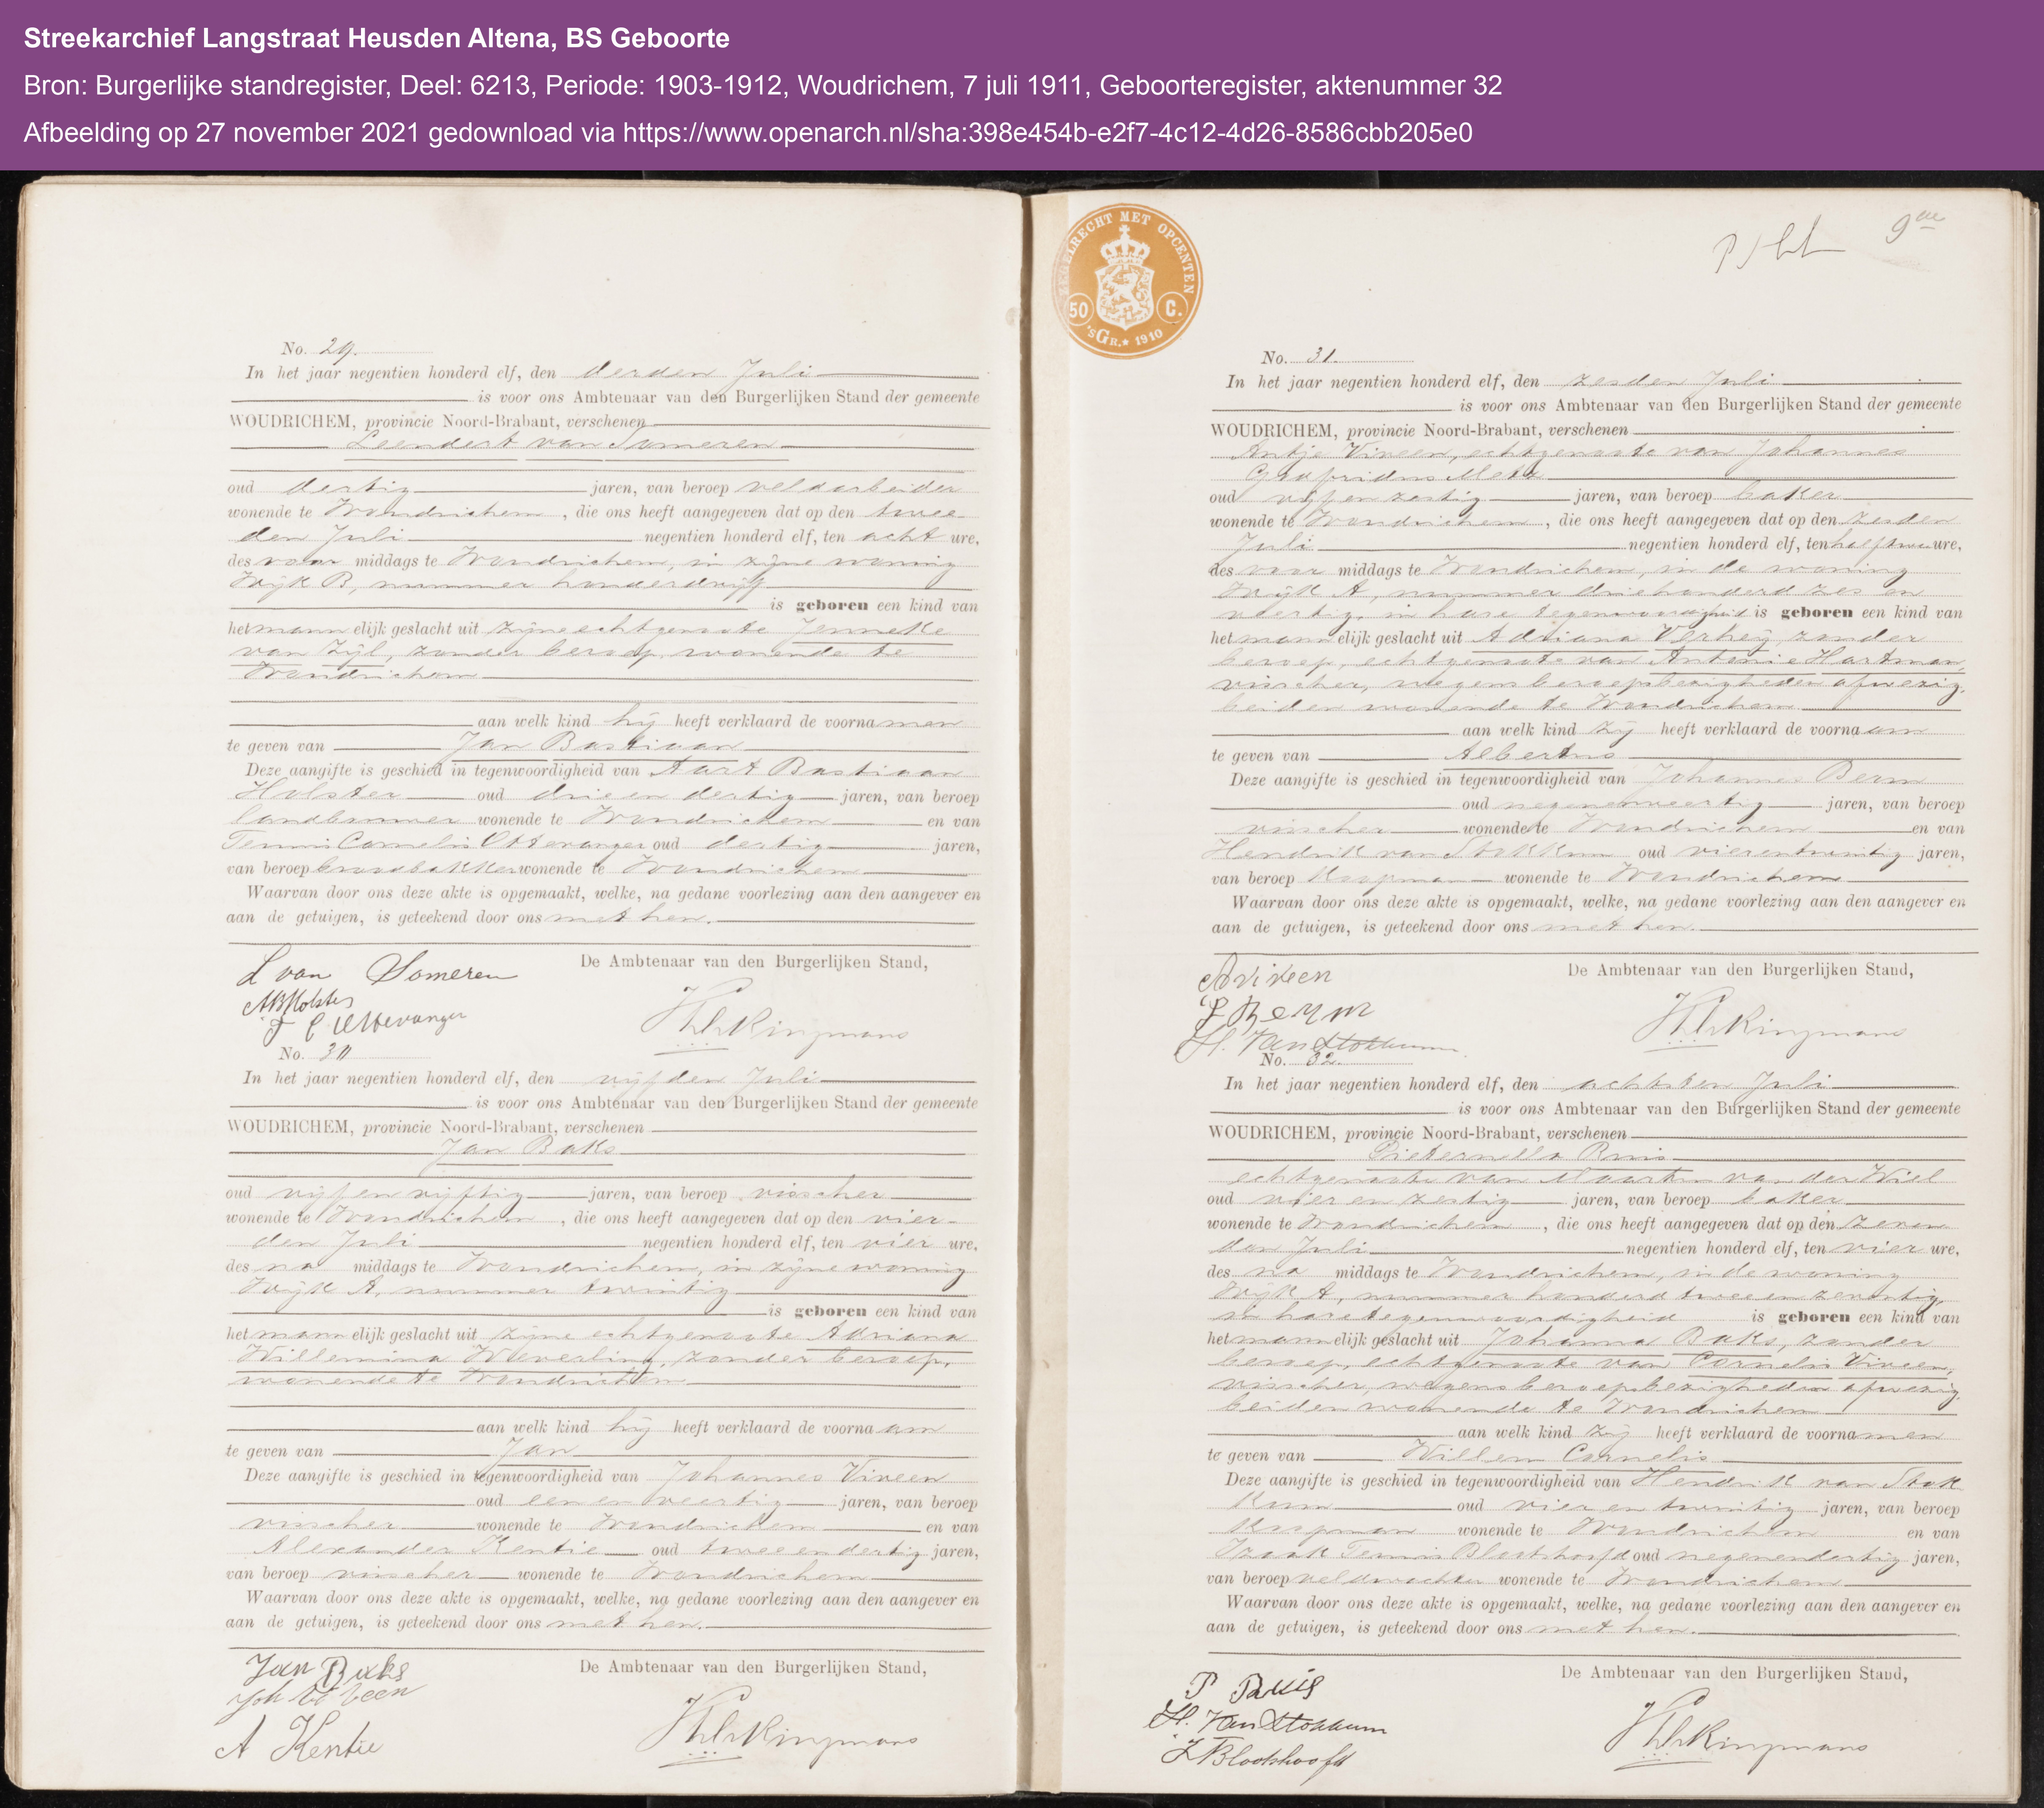 Streekarchief Langstraat Heusden Altena, BS Geboorte
Bron: Burgerlijke standregister, Deel: 6213, Periode: 1903-1912, Woudrichem, 7 juli 1911, Geboorteregister, aktenummer 32
Afbeelding op 27 november 2021 gedownload via https://www.openarch.nl/sha:398e454b-e2f7-4c12-4d26-8586cbb205e0
No. 29.
In het jaar negentien honderd elf, den derden Juli
is voor ons Ambtenaar van den Burgerlijken Stand der gemeente
WOUDRICHEM, provincie Noord-Brabant, verschenen
Leendert van Someren
oud dertig jaren, van beroep veldarbeider
wonende te Woudrichem, die ons heeft aangegeven dat op den twee-
den Juli negentien honderd elf, ten acht ure,
des voor middags te Woudrichem, in zijne woning
Wijk B, nummer honderdvijf
is geboren een kind van
het mannelijk geslacht uit zijne echtgenoote Jenneke
van Zijl, zonder beroep, wonende te
Woudrichem
aan welk kind hij heeft verklaard de voornamen
te geven van Jan Bastiaan
Deze aangifte is geschied in tegenwoordigheid van Aart Bastiaan
Holster oud drie en dertig jaren, van beroep
landbouwer wonende te Woudrichem en van
Teunis Cornelis Uittevanger oud dertig jaren,
van beroep broodbakker wonende te Woudrichem
Waarvan door ons deze akte is opgemaakt, welke, na gedane voorlezing aan den aangever en
aan de getuigen, is geteekend door ons met hen.
De Ambtenaar van den Burgerlijken Stand,
L van Someren
AB Holster
T C Uittevanger
No. 30
In het jaar negentien honderd elf, den vijfden Juli
is voor ons Ambtenaar van den Burgerlijken Stand der gemeente
WOUDRICHEM, provincie Noord-Brabant, verschenen
Jan Baks
oud vijf en vijftig jaren, van beroep visscher
wonende te Woudrichem, die ons heeft aangegeven dat op den vier-
den Juli negentien honderd elf, ten vier ure,
des na middags te Woudrichem, in zijne woning
Wijk A, nummer twintig
is geboren een kind van
het mannelijk geslacht uit zijne echtgenoote Adriana
Willemina Weverling, zonder beroep,
wonende te Woudrichem
aan welk kind hij heeft verklaard de voornaam
te geven van Jan
Deze aangifte is geschied in tegenwoordigheid van Johannes Viveen
oud een en veertig jaren, van beroep
visscher wonende te Woudrichem en van
Alexander Kentie oud twee en dertig jaren,
van beroep visscher wonende te Woudrichem
Waarvan door ons deze akte is opgemaakt, welke, na gedane voorlezing aan den aangever en
aan de getuigen, is geteekend door ons met hen.
De Ambtenaar van den Burgerlijken Stand,
Jan Baks
Joh Viveen
A Kentie
ZEGELRECHT MET OPCENTEN
50 C.
'sGr. 1910
9de
No. 31.
In het jaar negentien honderd elf, den zesden Juli
is voor ons Ambtenaar van den Burgerlijken Stand der gemeente
WOUDRICHEM, provincie Noord-Brabant, verschenen
Antje Viveen, echtgenoote van Johannes
Metz
oud vijf en zestig jaren, van beroep baker
wonende te Woudrichem, die ons heeft aangegeven dat op den zesden
Juli negentien honderd elf, ten half twee ure,
des voor middags te Woudrichem, in de woning
Wijk A, nummer driehonderd zes en
veertig, in hare tegenwoordigheid is geboren een kind van
het mannelijk geslacht uit Adriana Verheij, zonder
beroep, echtgenoote van Antonie Hartman,
visscher, wegens beroepsbezigheden afwezig,
beiden wonende te Woudrichem
aan welk kind zij heeft verklaard de voornaam
te geven van Albertus
Deze aangifte is geschied in tegenwoordigheid van Johannes
oud negenenveertig jaren, van beroep
visscher wonende te Woudrichem en van
Hendrik van Stokkum oud vierentwintig jaren,
van beroep Koopman wonende te Woudrichem
Waarvan door ons deze akte is opgemaakt, welke, na gedane voorlezing aan den aangever en
aan de getuigen, is geteekend door ons met hen.
De Ambtenaar van den Burgerlijken Stand,
A Viveen
H. van Stokkum
No. 32.
In het jaar negentien honderd elf, den achtsten Juli
is voor ons Ambtenaar van den Burgerlijken Stand der gemeente
WOUDRICHEM, provincie Noord-Brabant, verschenen
Pieternella Ruis
echtgenoote van Maarten van der Wiel
oud vier en zestig jaren, van beroep baker
wonende te Woudrichem, die ons heeft aangegeven dat op den zeven
den Juli negentien honderd elf, ten vier ure,
des na middags te Woudrichem, in de woning
Wijk A, nummer honderd twee en zeventig,
in hare tegenwoordigheid is geboren een kind van
het mannelijk geslacht uit Johanna Baks, zonder
beroep, echtgenoote van Cornelis Viveen,
visscher, wegens beroepsbezigheden afwezig,
beiden wonende te Woudrichem
aan welk kind zij heeft verklaard de voornamen
te geven van Willem Cornelis
Deze aangifte is geschied in tegenwoordigheid van Hendrik van Stok
kum oud vier en twintig jaren, van beroep
Koopman wonende te Woudrichem en van
Izaak Teunis Blootshoofd oud negenendertig jaren,
van beroep veldwachter wonende te Woudrichem
Waarvan door ons deze akte is opgemaakt, welke, na gedane voorlezing aan den aangever en
aan de getuigen, is geteekend door ons met hen.
De Ambtenaar van den Burgerlijken Stand,
P Ruis
H. van Stokkum
Blootshoofd